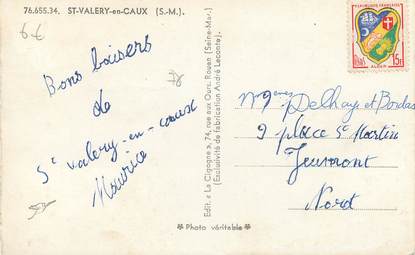 76.655.34. ST-VALERY-en-CAUX (S.-M.).
6€
Bons baisers
de
St Valery-en-caux
Maurice
78
Edit. « La Cigogne », 74, rue aux Ours, Rouen (Seine-Mar.)
(Exclusivité de fabrication André Leconte).
✾ Photo véritable ✾
REPUBLIQUE FRANÇAISE
POSTES 15F
ALGER
Mmes Delhaye et Bordas
9 place St Martin
Jeumont
Nord